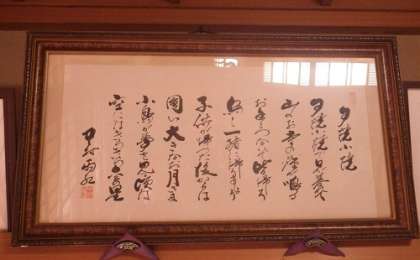 夕焼小焼
夕焼小焼で日が暮れて
山のお寺の鐘が鳴る
お手々つないで皆帰ろ
烏と一緒に帰りましょ
子供が帰った後からは
圓い大きなお月さま
小鳥が夢を見る頃は
空にはきらきら金の星
中村雨紅